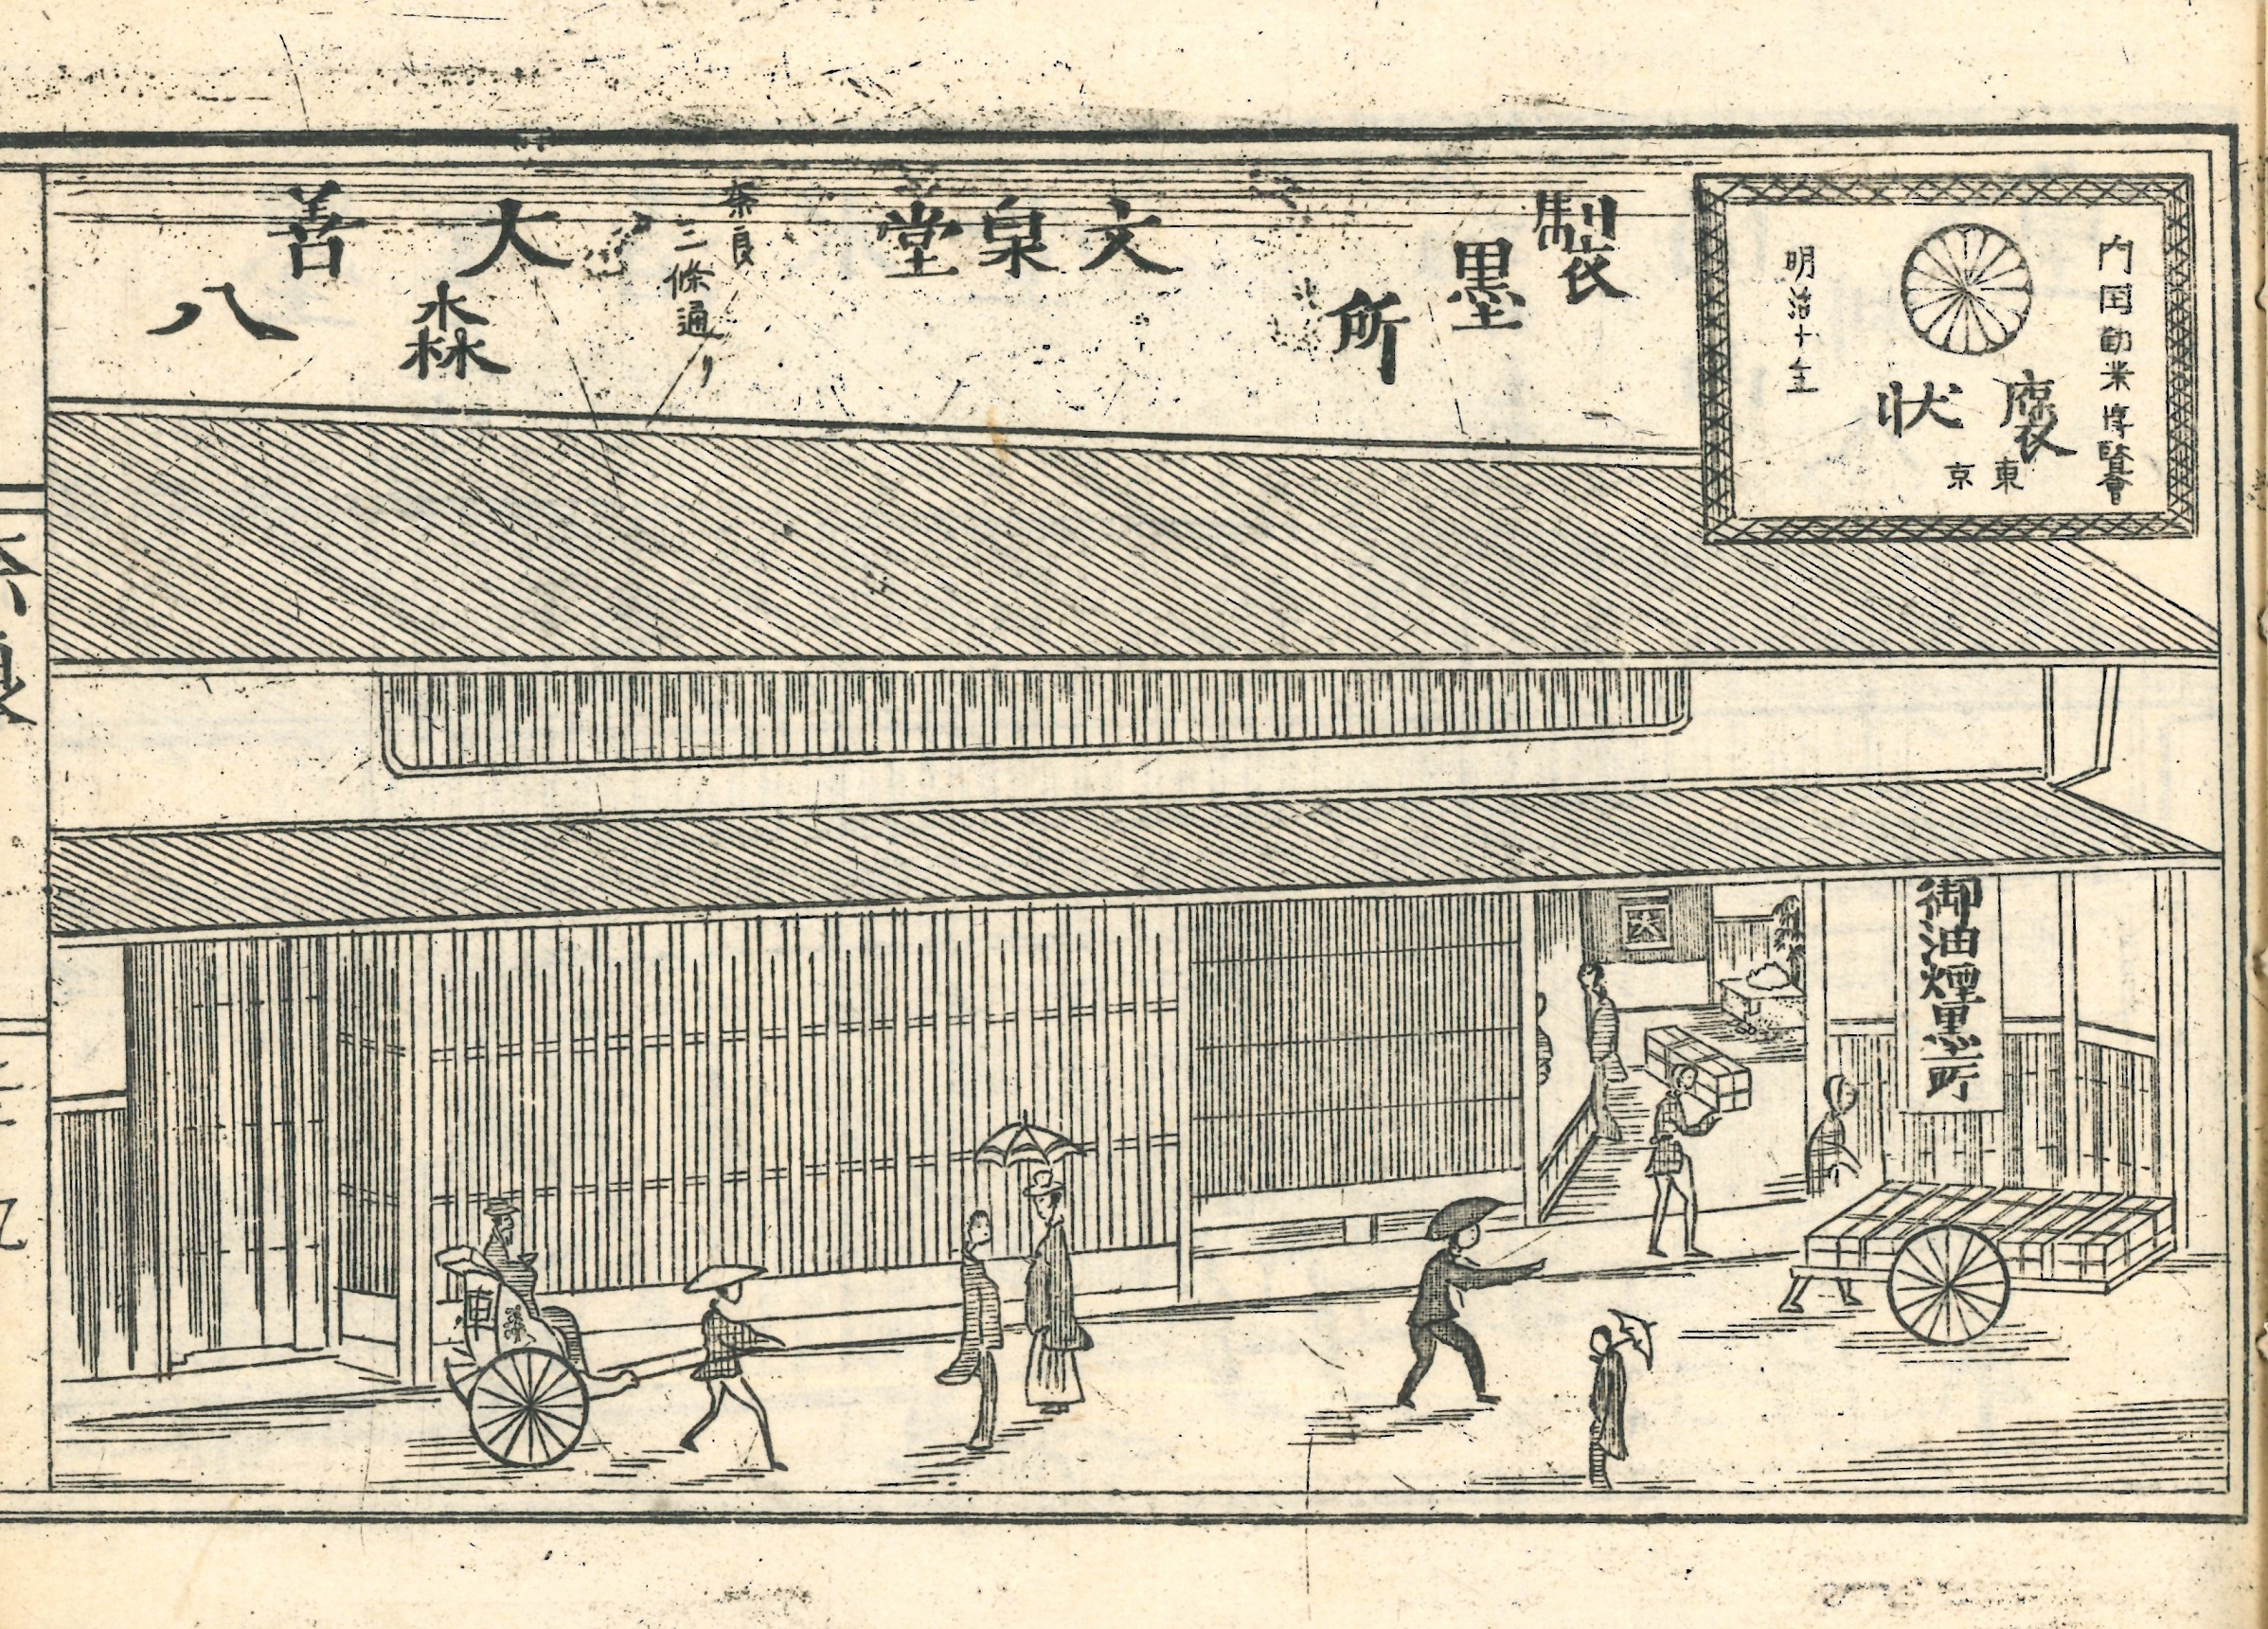 内国勧業博覧會
褒状
東京
明治十年
製墨所
文泉堂
奈良
三條通り
大森善八
大
御油煙墨所